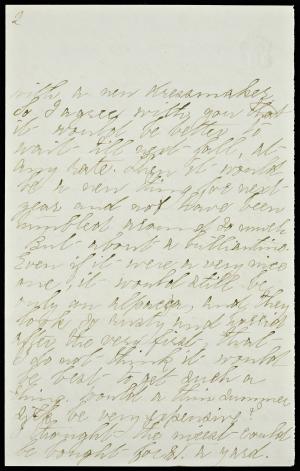 2
with a new dressmaker
So I agree with you that
it would be better to
wait till next fall, at
any rate. Then it would
be a new thing for next
year and not have been
tumbled around so much
But about a brilliantine.
Even if it were a very nice
one, it would still be
only an alpaca, and they
look so rusty and
after the very first, that
I do not think it would
be best to get such a
thing. Would a thin summer
silk be very expensive? I
thought the nicest could
be bought for $1. a yard.